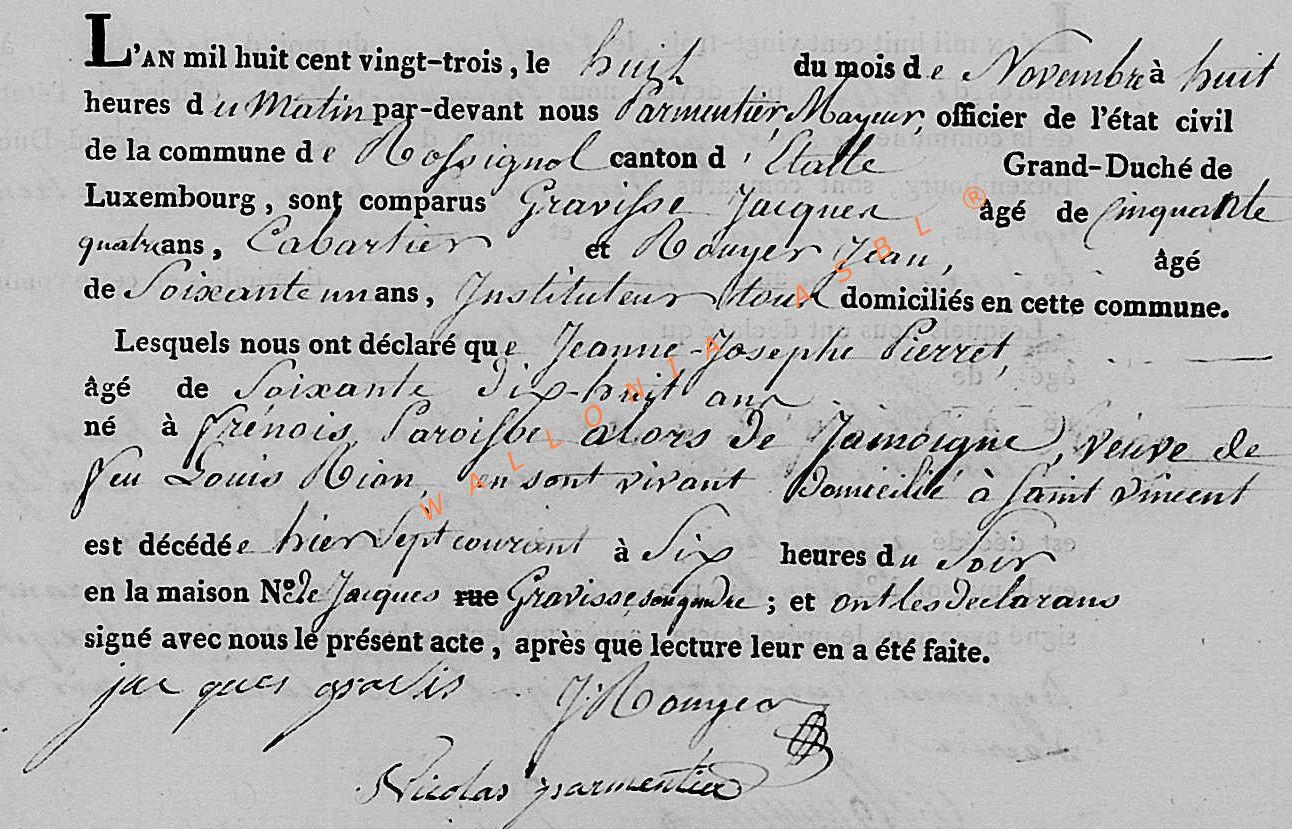 L'AN mil huit cent vingt-trois, le huit du mois de Novembre à huit
heures du Matin par-devant nous Parmentier, Mayeur, officier de l'état civil
de la commune de Rossignol canton d'Etalle Grand-Duché de
Luxembourg, sont comparus Gravisse Jacques âgé de Cinquante
quatre ans, Cabartier et Rouyer Jean, âgé
de Soixante un ans, Instituteur tous domiciliés en cette commune.
Lesquels nous ont déclaré que Jeanne-Josephe Pierret,
âgé de Soixante Dix-huit ans
né à frénois, Paroisse alors de Jamoigne, veuve de
feu Louis Rion, en sont vivant Domicilié à Saint Vincent
est décédée hier Sept courant à Six heures du Soir
en la maison N.o de Jacques rue Gravisse, son gendre; et ont les declarans
signé avec nous le présent acte, après que lecture leur en a été faite.
jacques gravis J. Rouyer
Nicolas parmentier
WALLONIA ASBL ®